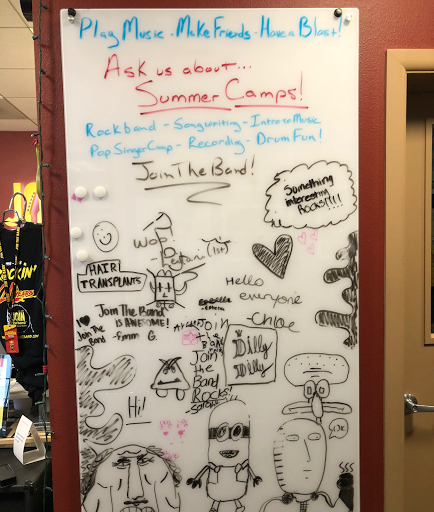 Play Music - Make Friends - Have a Blast!
Ask us about...
Summer Camps!
Rockband - Songwriting - Intro to Music
Pop Singer Camp - Recording - Drum Fun!
Join The Band!
Something
interesting
ROCKS!!!!
Wop!
(1st)
HAIR
TRANSPLANTS
Hello
everyone
-Chloe
I ♥
Join The
Band
Join The Band
IS AWESOME!
G.
Join
the
Band
Join
the
Band
Rocks!
Dilly
Dilly
Hi!